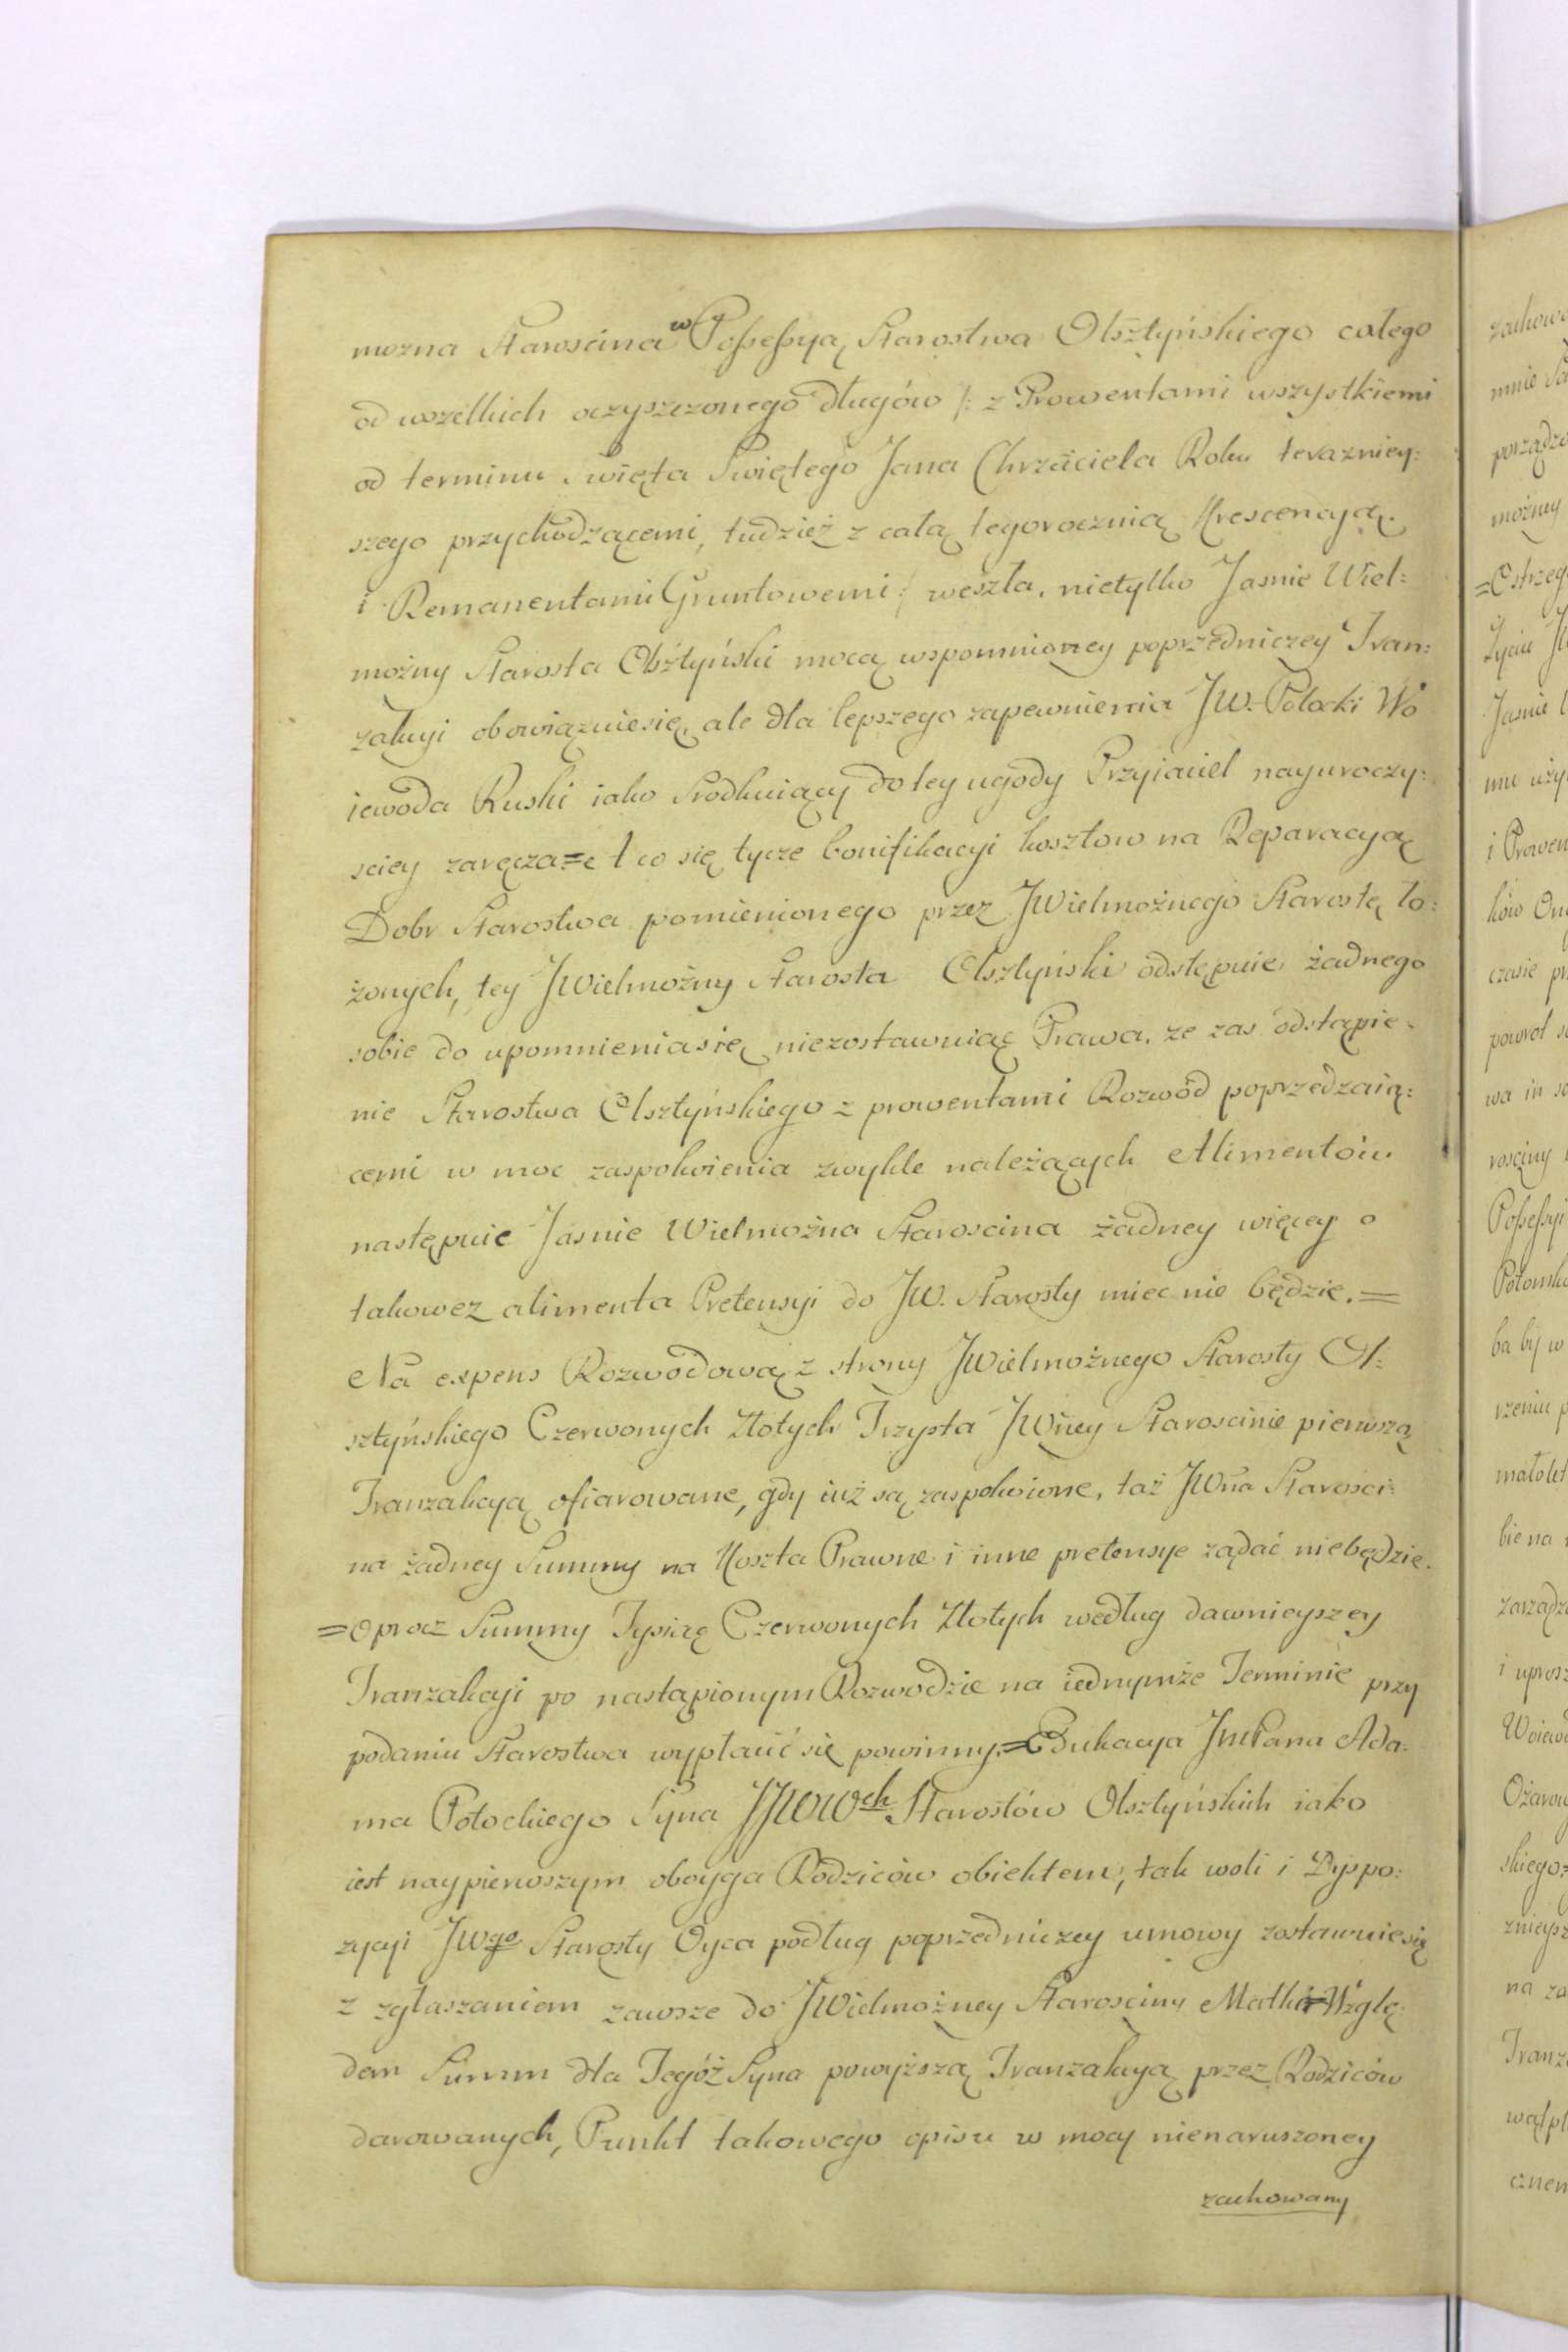 mozna Staroscina w Possessyą Starostwa Olsztyńskiego całego
od wszelkich oczyszczonego długów /: z Prowentami wszystkiemi
od terminu święta Swiętego Jana Chrzciciela Roku terazniey:
szego przychodzącemi, tudzież z całą tegorocznią Krescencyą.
i Remanentami Gruntowemi :/ weszła, nietylko Jasnie Wiel:
możny Starosta Olsztyński mocą wspomnioney poprzedniczey Tran:
zakcyi obowiązuie się, ale dla lepszego zapewnienia JW. Potocki Wo
iewoda Ruski iako Srodkuiący do tey ugody Przyiaciel nayuroczy:
sciey zaręcza = A co się tycze bonifikacyi kosztow na Reparacyą
Dobr Starostwa pomienionego przez JWielmożnego Starostę ło:
żonych, tey JWielmożny Starosta Olsztyński odstępuie żadnego
sobie do upomnienia się niezostawuiąc Prawa, ze zas odstąpie:
nie Starostwa Olsztyńskiego z prowentami Rozwód poprzedzaią:
cemi w moc zaspokoienia zwykle należących Alimentów
następuie Jasnie Wielmożna Staroscina żadney więcey o
takowez alimenta Pretensyi do JW. Starosty miec nie będzie. =
Na expens Rozwodową z strony JWielmożnego Starosty Ol:
sztyńskiego Czerwonych Złotych Trzysta JWney Staroscinie pierwszą
Tranzakcyą ofiarowane, gdy iuż są zaspokoione, taż JWna Starosci:
na żadney Summy na Koszta Prawne i inne pretensye żądać niebędzie.
= oprocz Summy Tysiąc Czerwonych Złotych według dawnieyszey
Tranzakcyi po nastąpionym Rozwodzie na iednymże Terminie przy
podaniu Starostwa wypłacić się powinny. = Edukacya JmPana Ada:
ma Potockiego Syna JJWWch Starostów Olsztyńskich iako
iest naypierwszym oboyga Rodziców obiektem, tak woli i Dyspo:
zycyi JWgo Starosty Oyca podług poprzedniczey umowy zostawuie się
z zgłaszaniem zawsze do JWielmożney Starosciny Matki = Wzglę:
dem Summ dla Tegóż Syna powyższą Tranzakcyą przez Rodziców
darowanych, Punkt takowego opisu w mocy nienaruszoney
zachowany